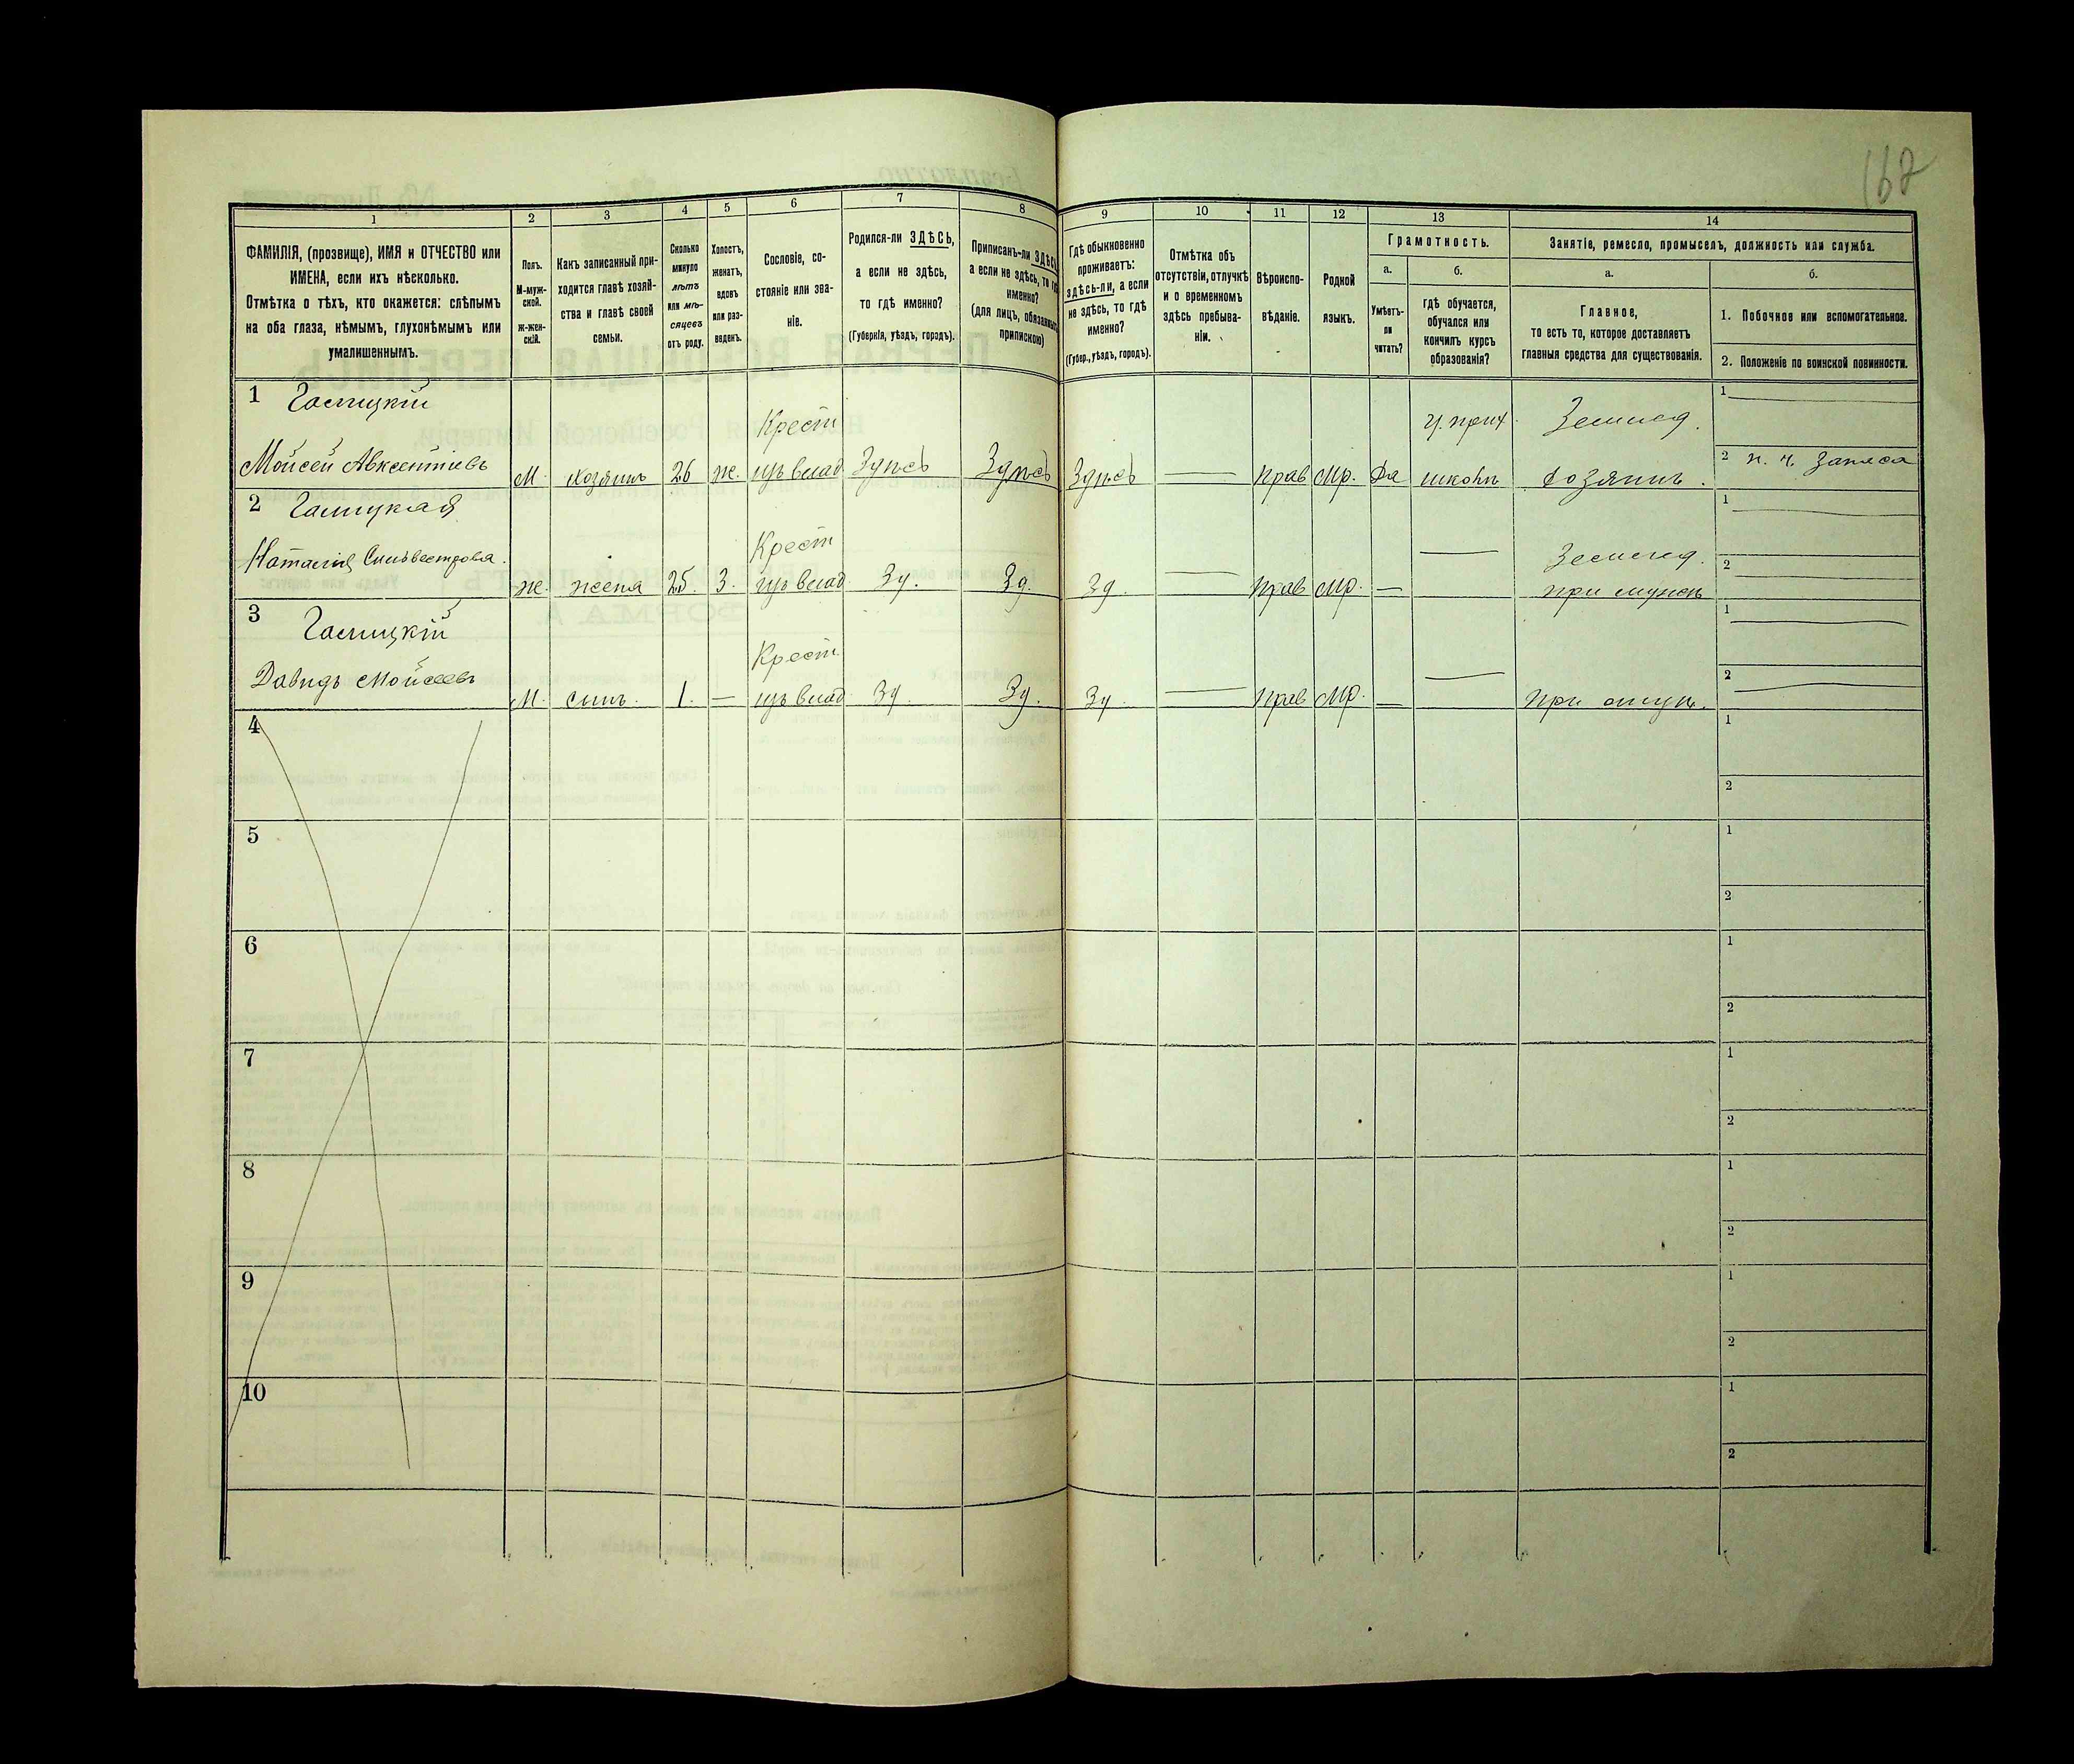 162
1
2
3
4
5
6
7
8
9
10
11
12
13
14
ФАМИЛІЯ, (прозвище), ИМЯ и ОТЧЕСТВО или
ИМЕНА, если ихъ нѣсколько.
Отмѣтка о тѣхъ, кто окажется: слѣпымъ
на оба глаза, нѣмымъ, глухонѣмымъ или
умалишеннымъ.
Полъ.
М-муж-
ской.
ж-жен-
скій.
Какъ записанный при-
ходится главѣ хозяй-
ства и главѣ своей
семьи.
Сколько
минуло
лѣтъ
или мѣ-
сяцевъ
отъ роду.
Холостъ,
женатъ,
вдовъ
или раз-
веденъ.
Сословіе, со-
стояніе или зва-
ніе.
Родился-ли ЗДѢСЬ,
а если не здѣсь,
то гдѣ именно?
(Губернія, уѣздъ, городъ).
Приписанъ-ли ЗДѢСЬ,
а если не здѣсь, то гдѣ
именно?
(для лицъ, обязанныхъ
припискою)
Гдѣ обыкновенно
проживаетъ:
здѣсь-ли, а если
не здѣсь, то гдѣ
именно?
(Губер., уѣздъ, городъ).
Отмѣтка объ
отсутствіи, отлучкѣ
и о временномъ
здѣсь пребыва-
ніи.
Вѣроиспо-
вѣданіе.
Родной
языкъ.
Грамотность.
а.
Умѣетъ-
ли
читать?
б.
гдѣ обучается,
обучался или
кончилъ курсъ
образованія?
Занятіе, ремесло, промыселъ, должность или служба.
а.
Главное,
то есть то, которое доставляетъ
главныя средства для существованія.
б.
1. Побочное или вспомогательное.
2. Положеніе по воинской повинности.
1 Галицкій
Мойсей Авксентіевъ
М. хозяинъ 26 ж.
Крест.
изъ влад.
Здѣсь Здѣсь Здѣсь — Прав Мр. Да
ц. прих.
школѣ
Землед.
Хозяинъ.
1 —
2 н. ч. запаса
2 Галицкая
Наталія Сильвестрова.
ж. жена 25. З.
Крест
изъ влад.
Зд. Зд. Зд. — Прав Мр. — —
Землед.
при мужѣ
1 —
2 —
3 Галицкій
Давидъ Мойсеевъ
М. сынъ. 1. —
Крест.
изъ влад.
Зд. Зд. Зд. — Прав Мр. — —
при отцѣ.
1 —
2 —
4
1
2
5
1
2
6
1
2
7
1
2
8
1
2
9
1
2
10
1
2